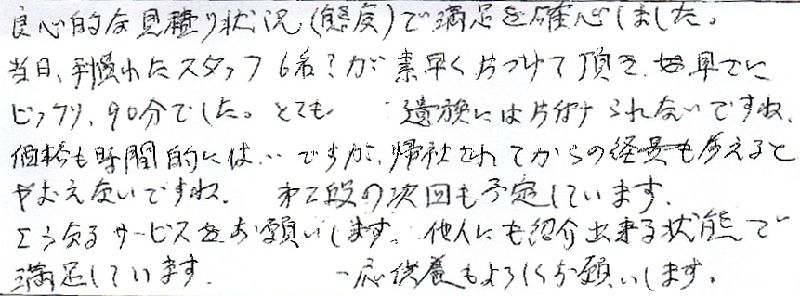 良心的な見積り状況(態度)で満足を確心しました。
当日、手慣れたスタッフ6名?が素早く片づけて頂き、
ビックリ、90分でした。とても 遺族には片付けられないですね、
価格も時間的には…ですが、帰社されてからの経費も考えると
やむえないですね。 第2段の次回も予定しています。
さらなるサービスをお願いします。他人にも紹介出来る状態で
満足しています。 一応供養もよろしくお願いします。